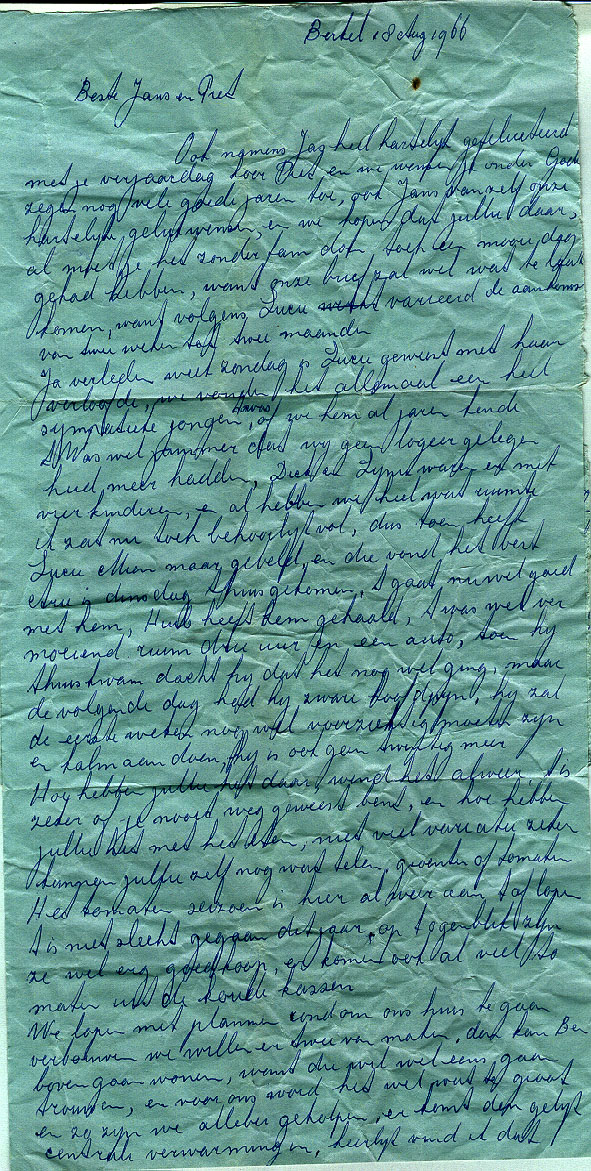 Berkel 18 Aug 1966
Beste Jans en Piet
Ook namens Jag heel hartelijk gefeliciteerd
met je verjaardag hoor Piet en we wensen je onder Gods
zegen nog vele goede jaren toe, ook Jans van zelf onze
hartelijke gelukwensen, en we hopen dat jullie daar,
al moest je het zonder fam doen toch een mooie dag
gehad hebben, want onze brief zal wel wat te laat
komen, want volgens Lucie varieerd de aankomst
van twee weken tot twee maanden
Ja verleden week zondag is Lucie geweest met haar
verloofde, we vonden het allemaal een heel
sympatieke jongen, 't was of we hem al jaren kende
't Was wel jammer dat wij geen logeer gelegen
heid meer hadden, en waren er met
vier kinderen, en al hebben we heel wat ruimte
it zat nu toch behoorlijk vol, dus toen heeft
Lucie maar gebeld, en die vond het best
is dinsdag thuis gekomen, 't gaat nu wel goed
met hem, Huib heeft hem gehaald, 't was wel ver
moeiend ruim drie uur in een auto, toen hij
thuis kwam dacht hij dat het nog wel ging, maar
de volgende dag had hij zware hoofdpijn, hij zal
de eerste weken nog wel voorzichtig moeten zijn
en kalm aan doen, hij is ook geen twintig meer
Hoe hebben jullie het daar, wend het alweer 't is
zeker of je nooit weg geweest bent, en hoe hebben
jullie het met het eten, niet veel variatie zeker
kunnen jullie zelf nog wat telen, groenten of tomaten
Het tomaten seizoen is hier al weer aan 't aflopen
't is niet slecht gegaan dit jaar, op 't ogenblik zijn
ze wel erg goedkoop, er komen ook al veel to
maten uit de koude kassen
We lopen met plannen rondom ons huis te gaan
verbouwen we willen er twee van maken, dan kan Ben
boven gaan wonen, want die wil wel eens gaan
trouwen, en voor ons word het wel wat te groot
en zo zijn we allebei geholpen, er komt dan gelijk
centrale verwarmingen, heerlijk vind ik dat